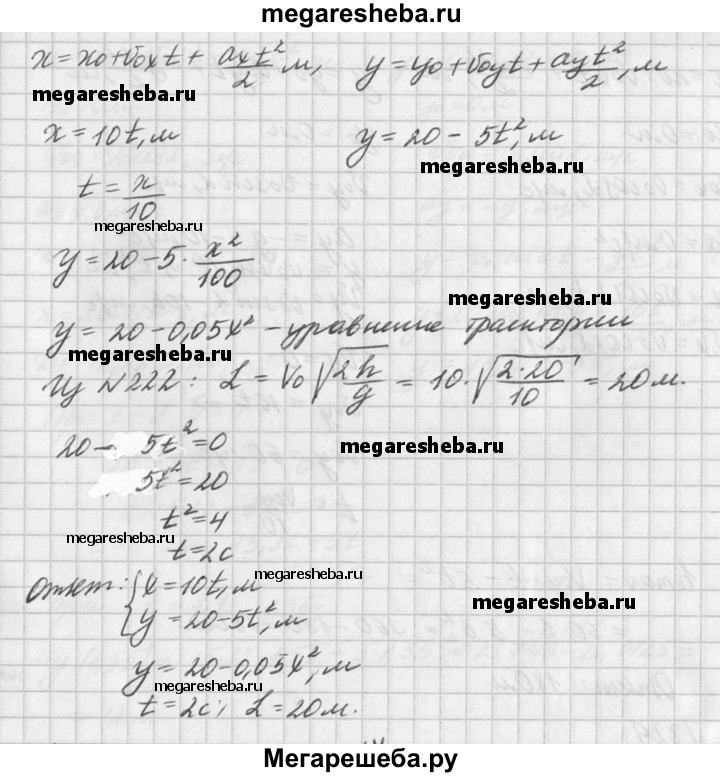 megaresheba.ru
x = x₀ + v₀ₓt + aₓt²/2 м,    y = y₀ + v₀yt + ayt²/2, м
megaresheba.ru
x = 10t, м    y = 20 - 5t², м
megaresheba.ru
t = x/10
megaresheba.ru
y = 20 - 5 · x²/100
megaresheba.ru
y = 20 - 0,05x² - уравнение траектории
megaresheba.ru
Из №222 : L = v₀√(2h/g) = 10 · √(2·20/10) = 20 м.
20 - 5t² = 0
megaresheba.ru
5t² = 20
t² = 4
megaresheba.ru
t = 2c
megaresheba.ru
Ответ: { x = 10t, м
megaresheba.ru
y = 20 - 5t², м
y = 20 - 0,05x², м
megaresheba.ru
t = 2c; L = 20 м.
Мегарешеба.ру